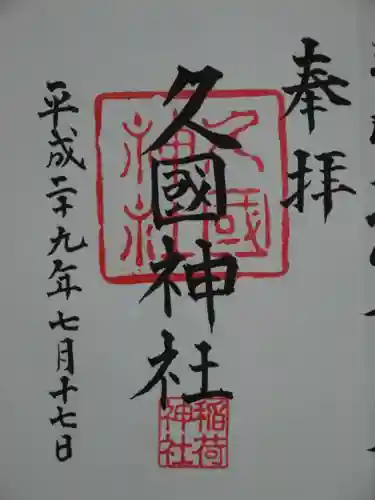 奉拝
久國神社
久國
神社
稲荷
神社
平成二十九年七月十七日